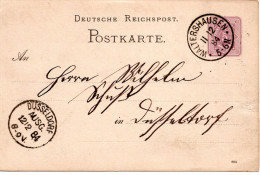 DEUTSCHE REICHSPOST.
POSTKARTE.
WALTERSHAUSEN
11 12
84
5-6N
An
Herrn Wilhelm
Schuft
in Düsseldorf
DÜSSELDORF
AUSG.
12/2 84
8-9V.